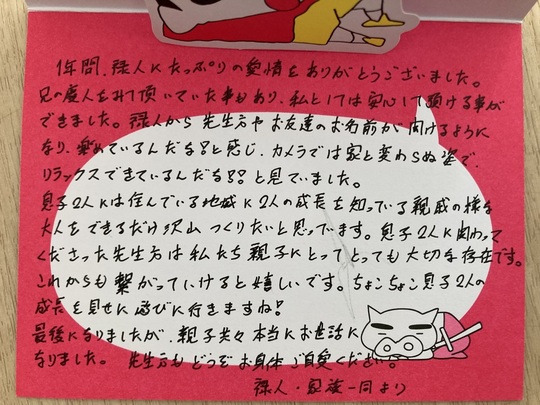 1年間、禄人にたっぷりの愛情をありがとうございました。
兄の慶人をみて頂いていた事もあり、私としては安心して預ける事が
できました。禄人から先生方やお友達のお名前が聞けるように
なり、楽しめているんだな!と感じ、カメラでは家と変わらぬ姿で、
リラックスできているんだな!!と見ていました。
息子2人には住んでいる地域に2人の成長を知っている親戚の様な
大人をできるだけ沢山つくりたいと思っています。息子2人に関わって
くださった先生方は私たち親子にとってとっても大切な存在です。
これからも繋がっていけると嬉しいです。ちょこちょこ息子2人の
成長を見せに遊びに行きますね!
最後になりましたが、親子共々本当にお世話に
なりました。先生方もどうぞお身体ご自愛ください。
禄人・家族一同より